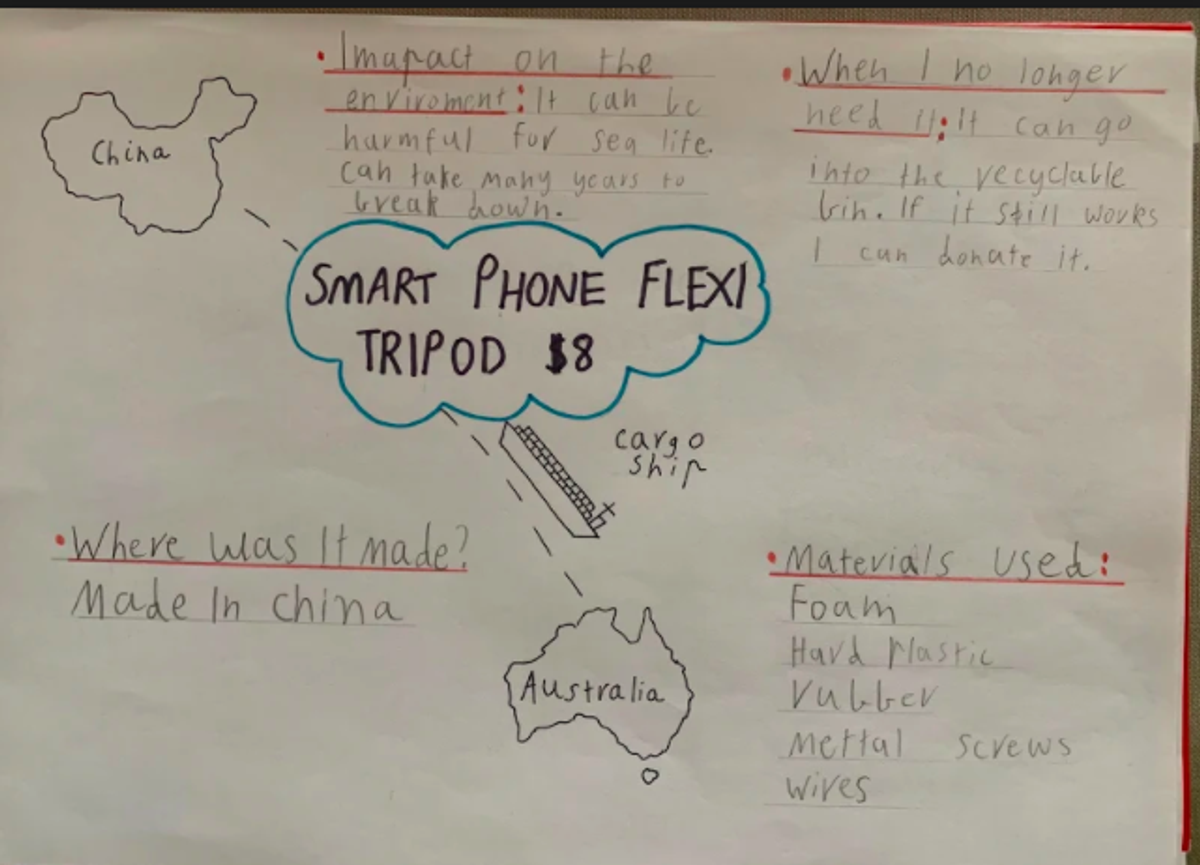 China
• Imapact on the
enviroment: It can be
harmful for sea life.
Can take many years to
break down.
• When I no longer
need it: It can go
into the recyclable
bin. If it still works
I can donate it.
SMART PHONE FLEXI
TRIPOD $8
cargo
ship
• Where was It made?
Made In China
Australia
• Materials used:
Foam
Hard Plastic
rubber
Mettal screws
wires